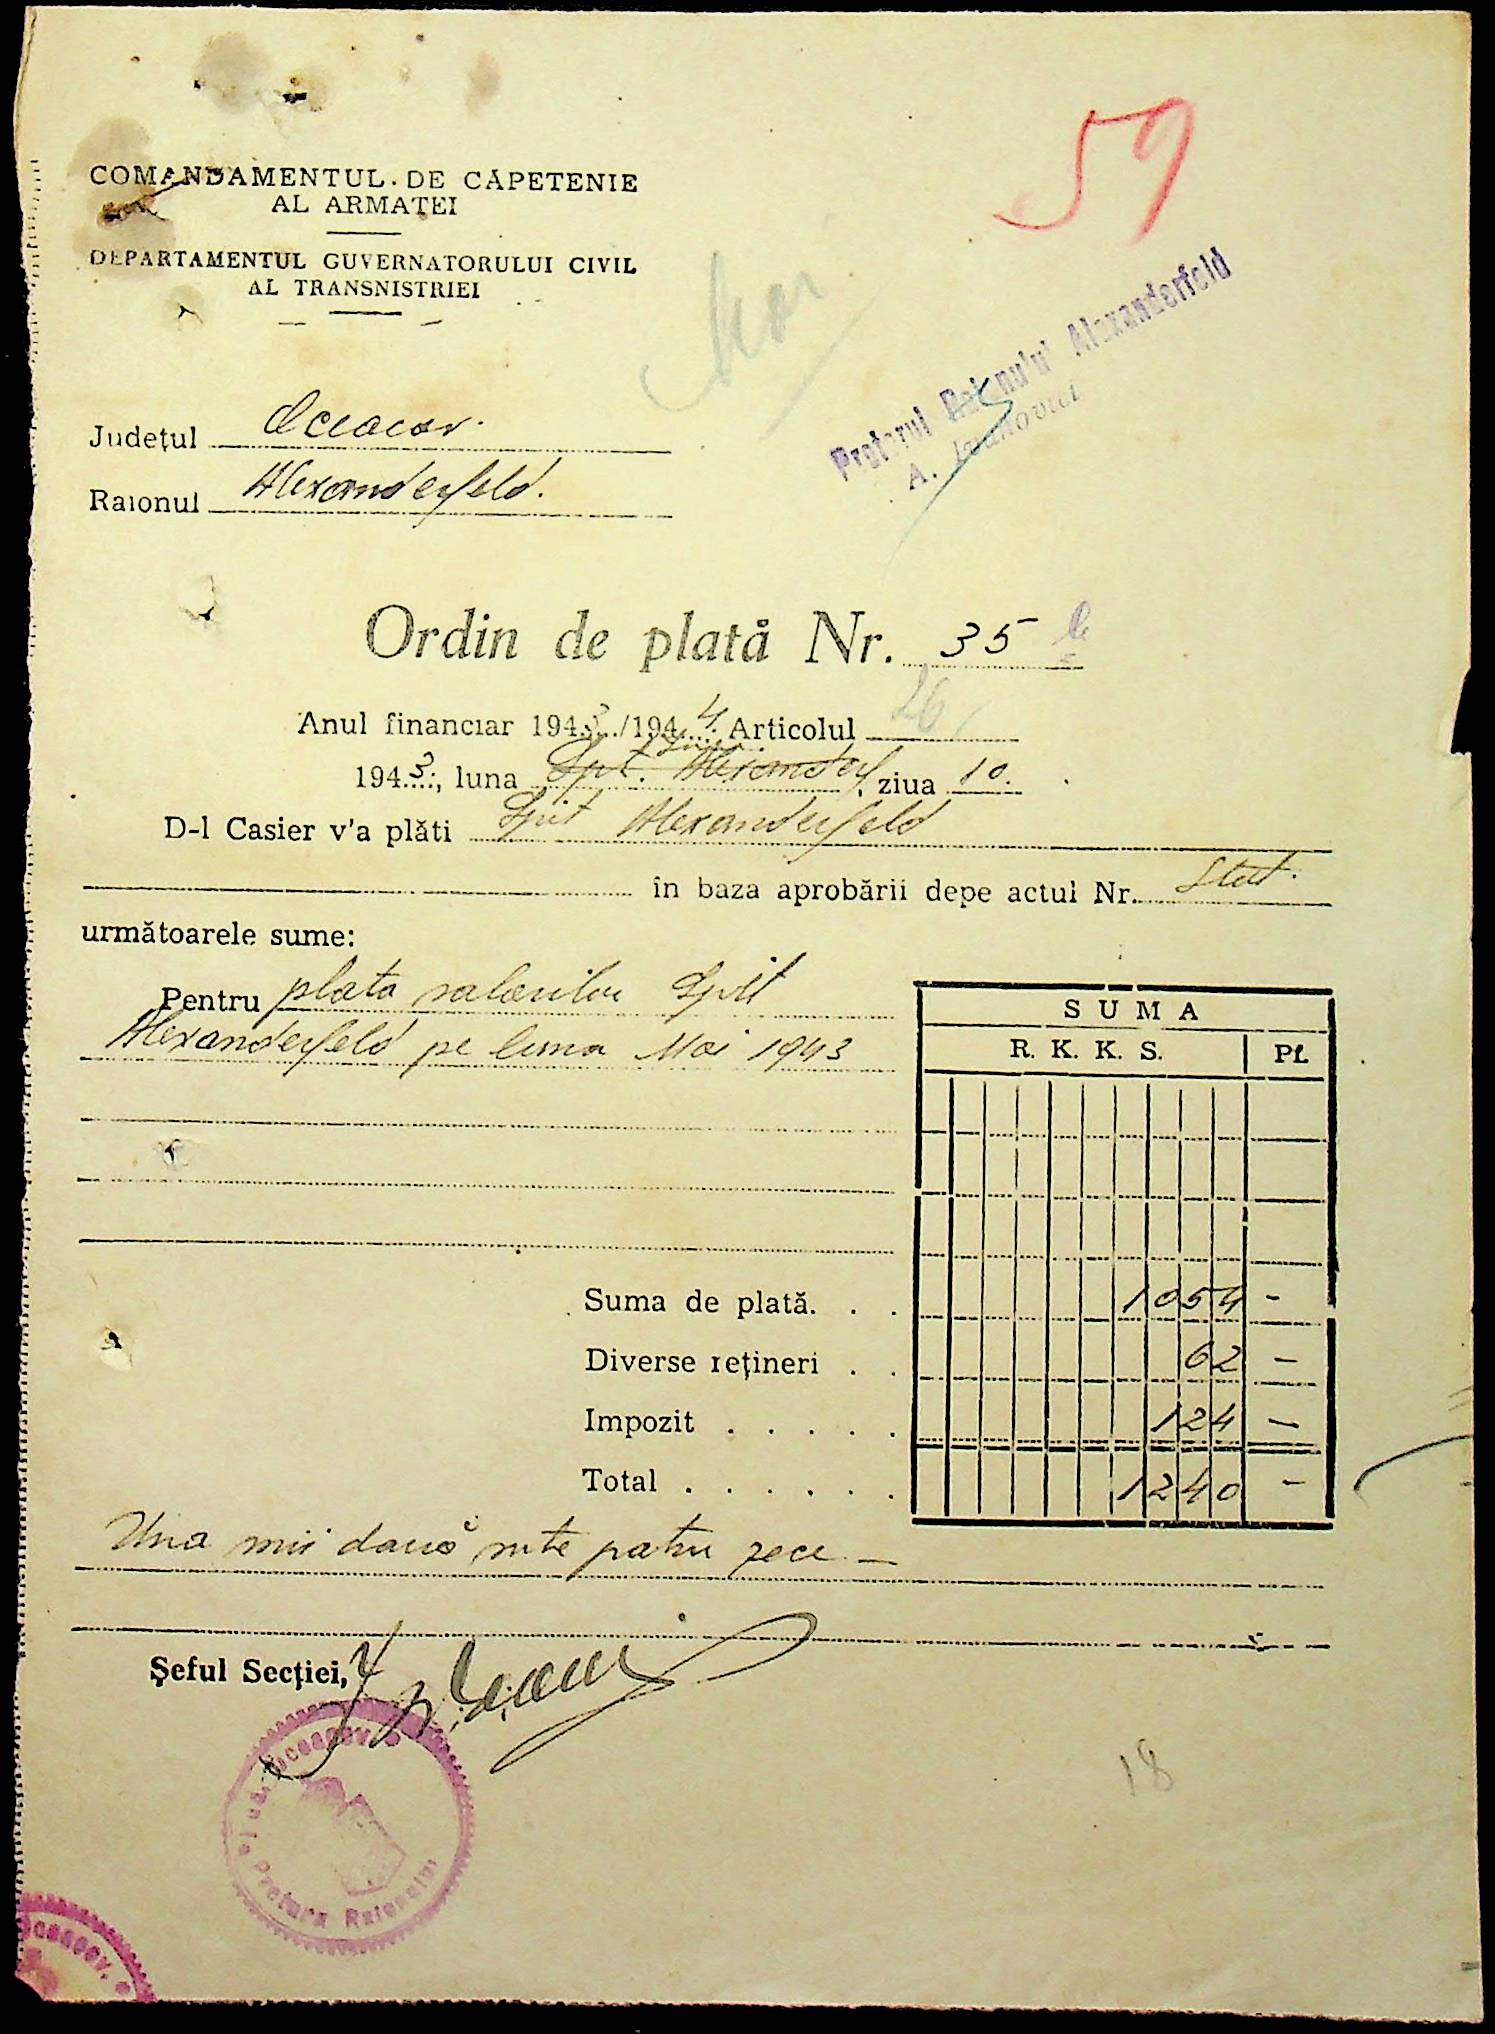 59
COMANDAMENTUL DE CĂPETENIE
AL ARMATEI
DEPARTAMENTUL GUVERNATORULUI CIVIL
AL TRANSNISTRIEI
Mai
Pretorul Raionului Alexanderfeld
A.
Județul Oceacov.
Raionul Alexanderfeld.
Ordin de plată Nr. 35
Anul financiar 1943/1944 Articolul 26
1943, luna Iunie, ziua 10.
D-l Casier v'a plăti Spit Alexanderfeld
în baza aprobării depe actul Nr. Stat.
următoarele sume:
Pentru plata salariilor Spit
Alexanderfeld pe luna Mai 1943
SUMA
R. K. K. S. Pf.
Suma de plată. . . 1054 -
Diverse rețineri . . 62 -
Impozit . . . . . 124 -
Total . . . . . . 1240 -
Una mii două sute patru zece -
Șeful Secției,
18
Oceacov
Pretura Raionului